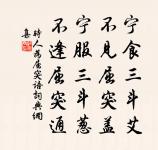 宁食三斗艾
不见屈突盖
宁服三斗葱
不逢屈突通
時人為屈突語詞典網
集